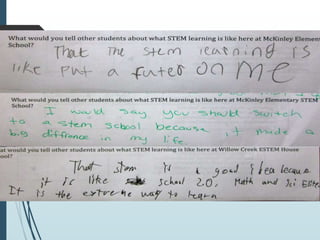 What would you tell other students about what STEM learning is like here at McKinley Element
School?
That the stem learning IS
like put a futer ON ME
What would you tell other students about what STEM learning is like here at McKinley Elementary STEM
School?
I would say you should switch
to a stem school because it made a
big diffrence in my life
at would you tell other students about what STEM learning is like here at Willow Creek ESTEM House
ool?
That stem is a good idea because
it is like school 2.0, Math and Sci
It is the extreme way to learn